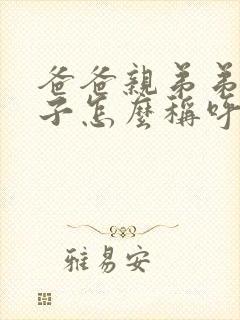 爸爸親弟弟
子怎麼稱呼
雅易安